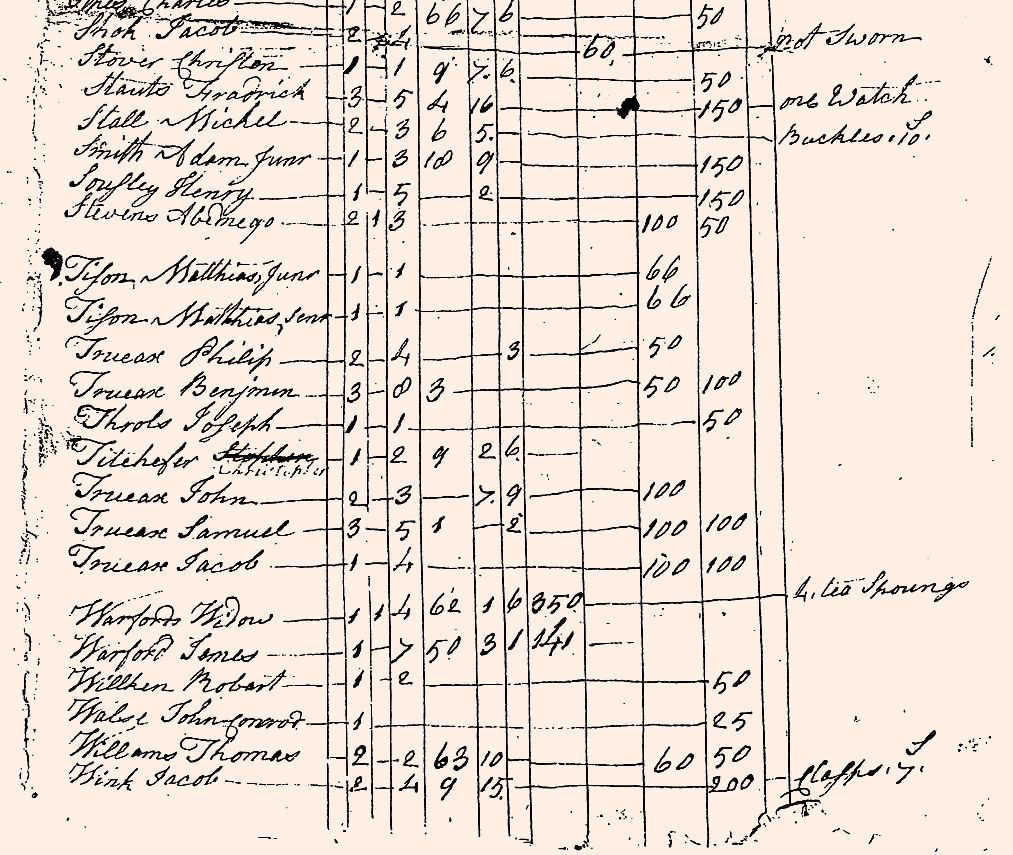 Charles 1 2 66 7 6 50
Shok Jacob 2 4 60 not Sworn
Stover Christen 1 1 9 7 6 50
Stauts Fradrick 3 5 4 16 150 one Watch
Stall Michel 2 3 6 5 Buckles 10
Smith Adam Junr 1 3 18 9 150
Henry 1 5 2 150
Stevens Abednego 2 1 3 100 50
Tison Matthias, Junr 1 1 66
Tison Matthias, senr 1 1 66
Trueax Philip 2 4 3 50
Trueax Benjmen 3 8 3 50 100
Throls Joseph 1 1 50
Titchefer Christopher 1 2 9 2 6
Trueax John 2 3 7 9 100
Trueax Samuel 3 5 1 2 100 100
Trueax Jacob 1 4 100 100
Warfords Widow 1 1 4 62 1 6 350 4 tea Spoungs
Warford Jemes 1 7 50 3 1 141
Willken Robart 1 2 50
Walse John conrod 1 25
Willams Thomas 2 2 63 10 60 50
Wink Jacob 2 4 9 15 200 Clasps 7